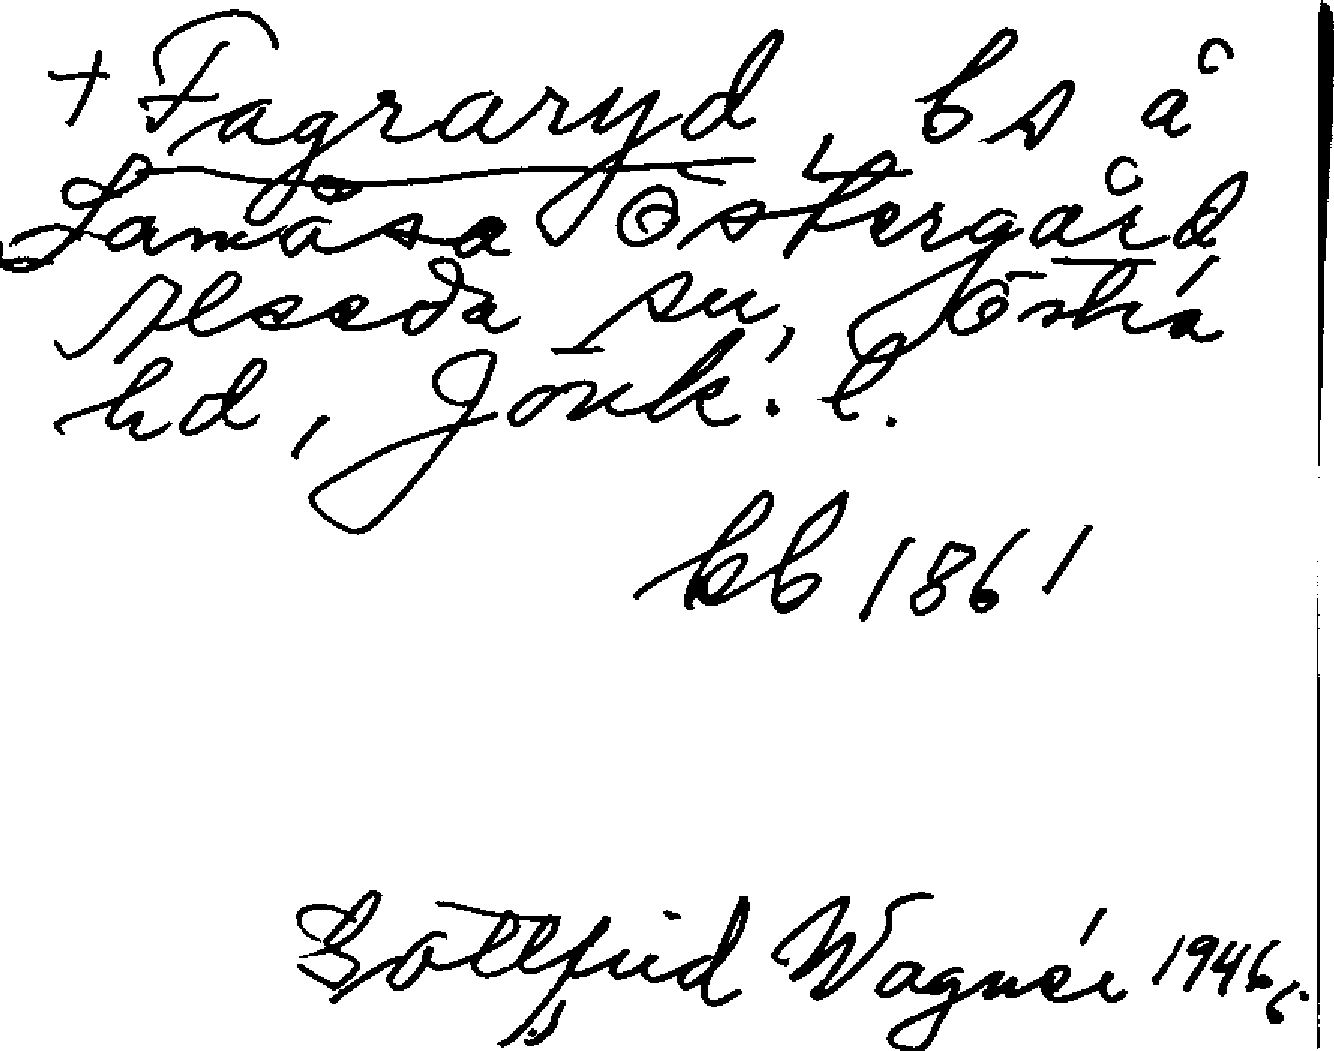 + Fagraryd, bs å
Lamåsa Östergård
Alseda sn, Östra
hd, Jönk. l.
kb 1861
Gottfrid Wagnér 1946